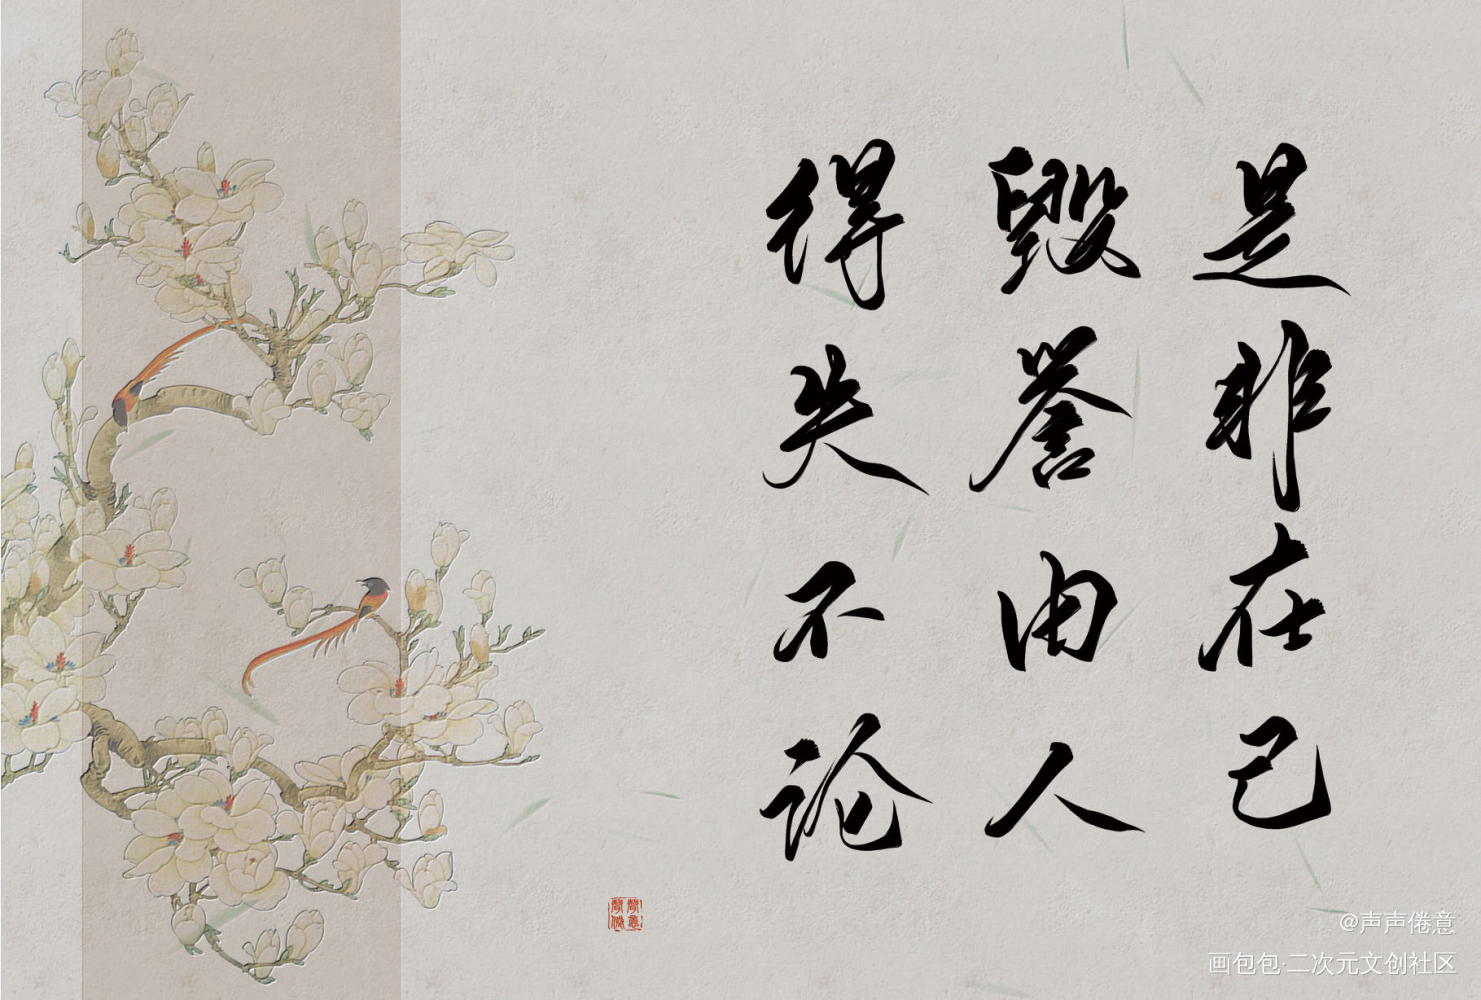 是非在己
毁誉由人
得失不论
声声倦意
@声声倦意
画包包·二次元文创社区